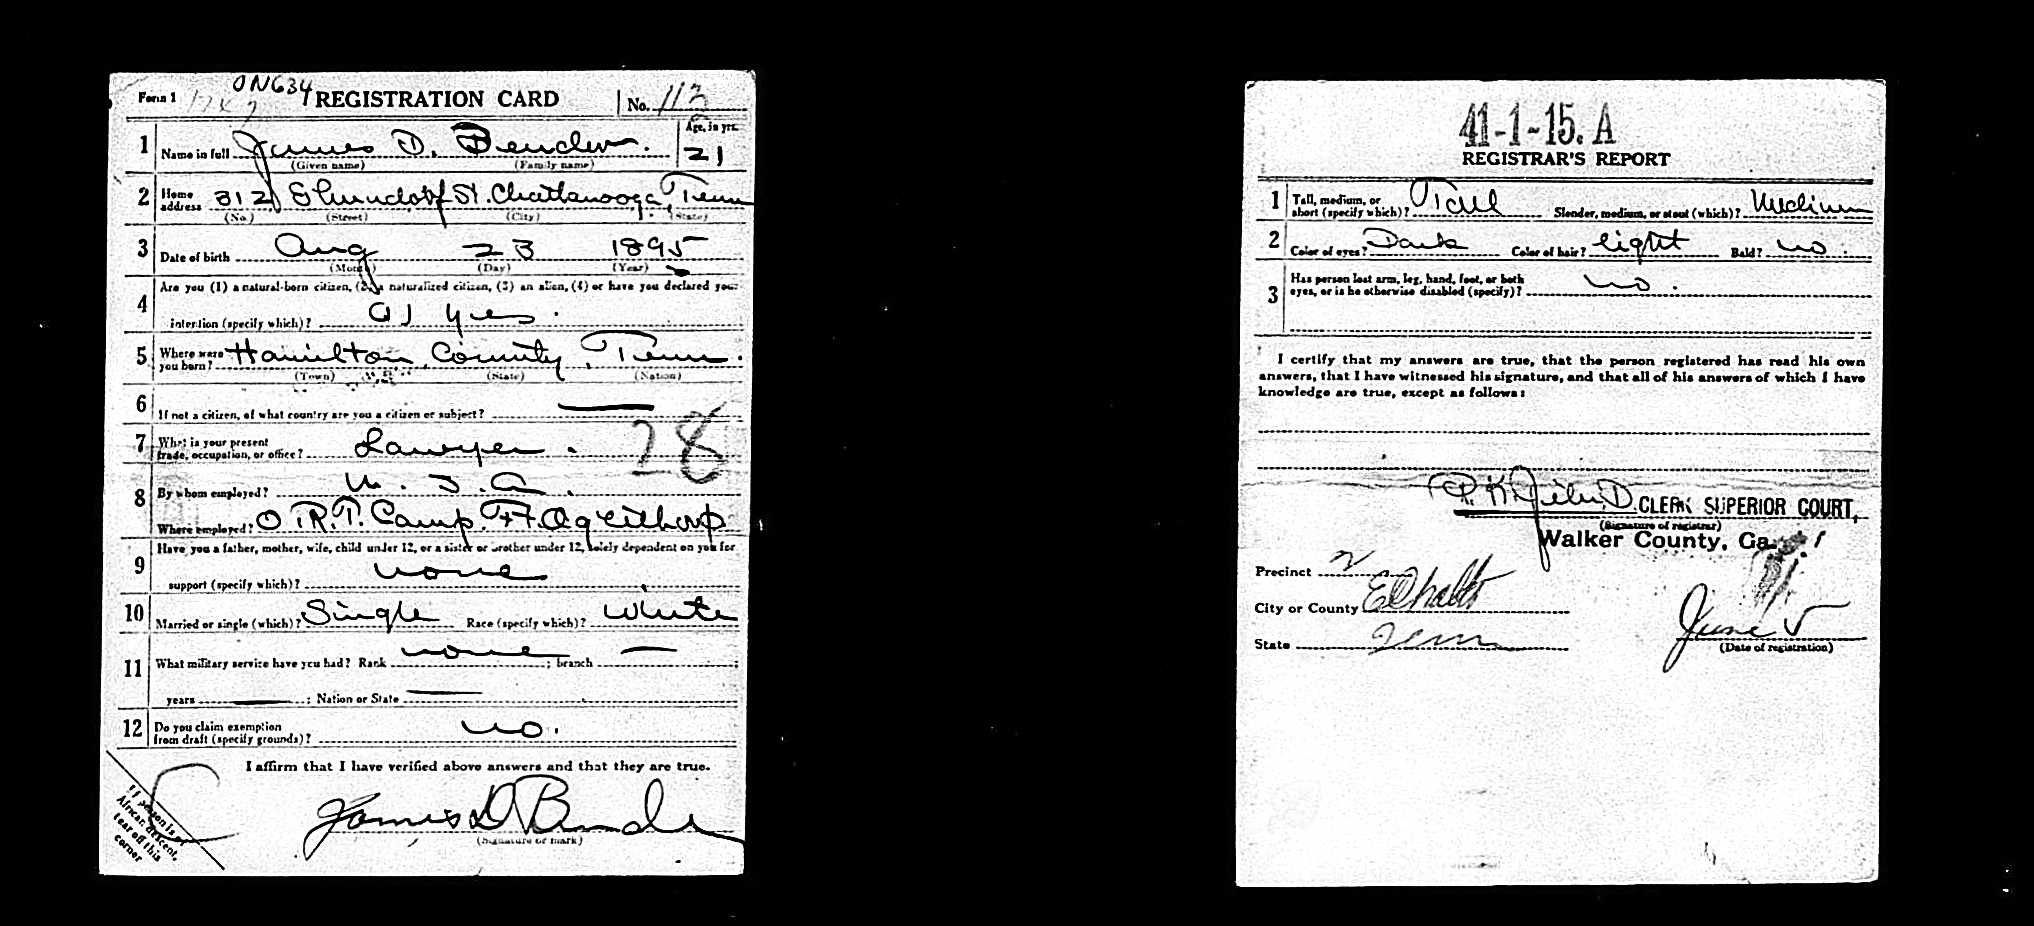 Form 1
ONG34
REGISTRATION CARD
No. 113
1 Name in full James D. Bender.
(Given name) (Family name)
Age, in yrs.
21
2 Home address 312 St. Chattanooga, Tenn
(No.) (Street) (City) (State)
3 Date of birth Aug 23 1895
(Month) (Day) (Year)
4 Are you (1) a natural-born citizen, (2) a naturalized citizen, (3) an alien, (4) or have you declared your
intention (specify which)? yes.
5 Where were you born? Hamilton County, Tenn.
(Town) (State) (Nation)
6 If not a citizen, of what country are you a citizen or subject?
28
7 What is your present
trade, occupation, or office? Lawyer.
8 By whom employed? U. S. A.
Where employed? O. R. T. Camp. Ft. Oglethorp
9 Have you a father, mother, wife, child under 12, or a sister or brother under 12, solely dependent on you for
support (specify which)? none
10 Married or single (which)? Single Race (specify which)? White
11 What military service have you had? Rank none ; branch — ;
years — ; Nation or State —
12 Do you claim exemption
from draft (specify grounds)? no.
I affirm that I have verified above answers and that they are true.
James D Bender
(Signature or mark)
If person is of
African descent,
tear off this
corner
41-1-15. A
REGISTRAR'S REPORT
1 Tall, medium, or
short (specify which)? Tall Slender, medium, or stout (which)? Medium
2 Color of eyes? Dark Color of hair? light Bald? no.
3 Has person lost arm, leg, hand, foot, or both
eyes, or is he otherwise disabled (specify)? no.
I certify that my answers are true, that the person registered has read his own
answers, that I have witnessed his signature, and that all of his answers of which I have
knowledge are true, except as follows:
CLERK SUPERIOR COURT,
(Signature of registrar)
Walker County, Ga.
Precinct
City or County
State Tenn
June 5
(Date of registration)